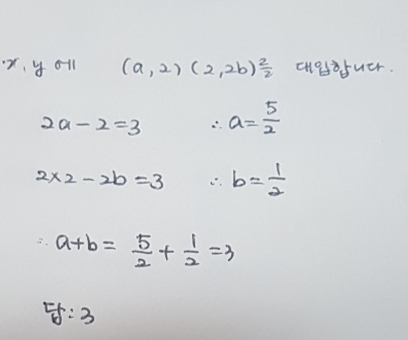 ·x, y 에 (a, 2) (2, 2b)를 대입합니다.
2a-2=3 ∴a=5/2
2×2-2b=3 ∴b=1/2
∴a+b= 5/2 + 1/2 =3
답:3